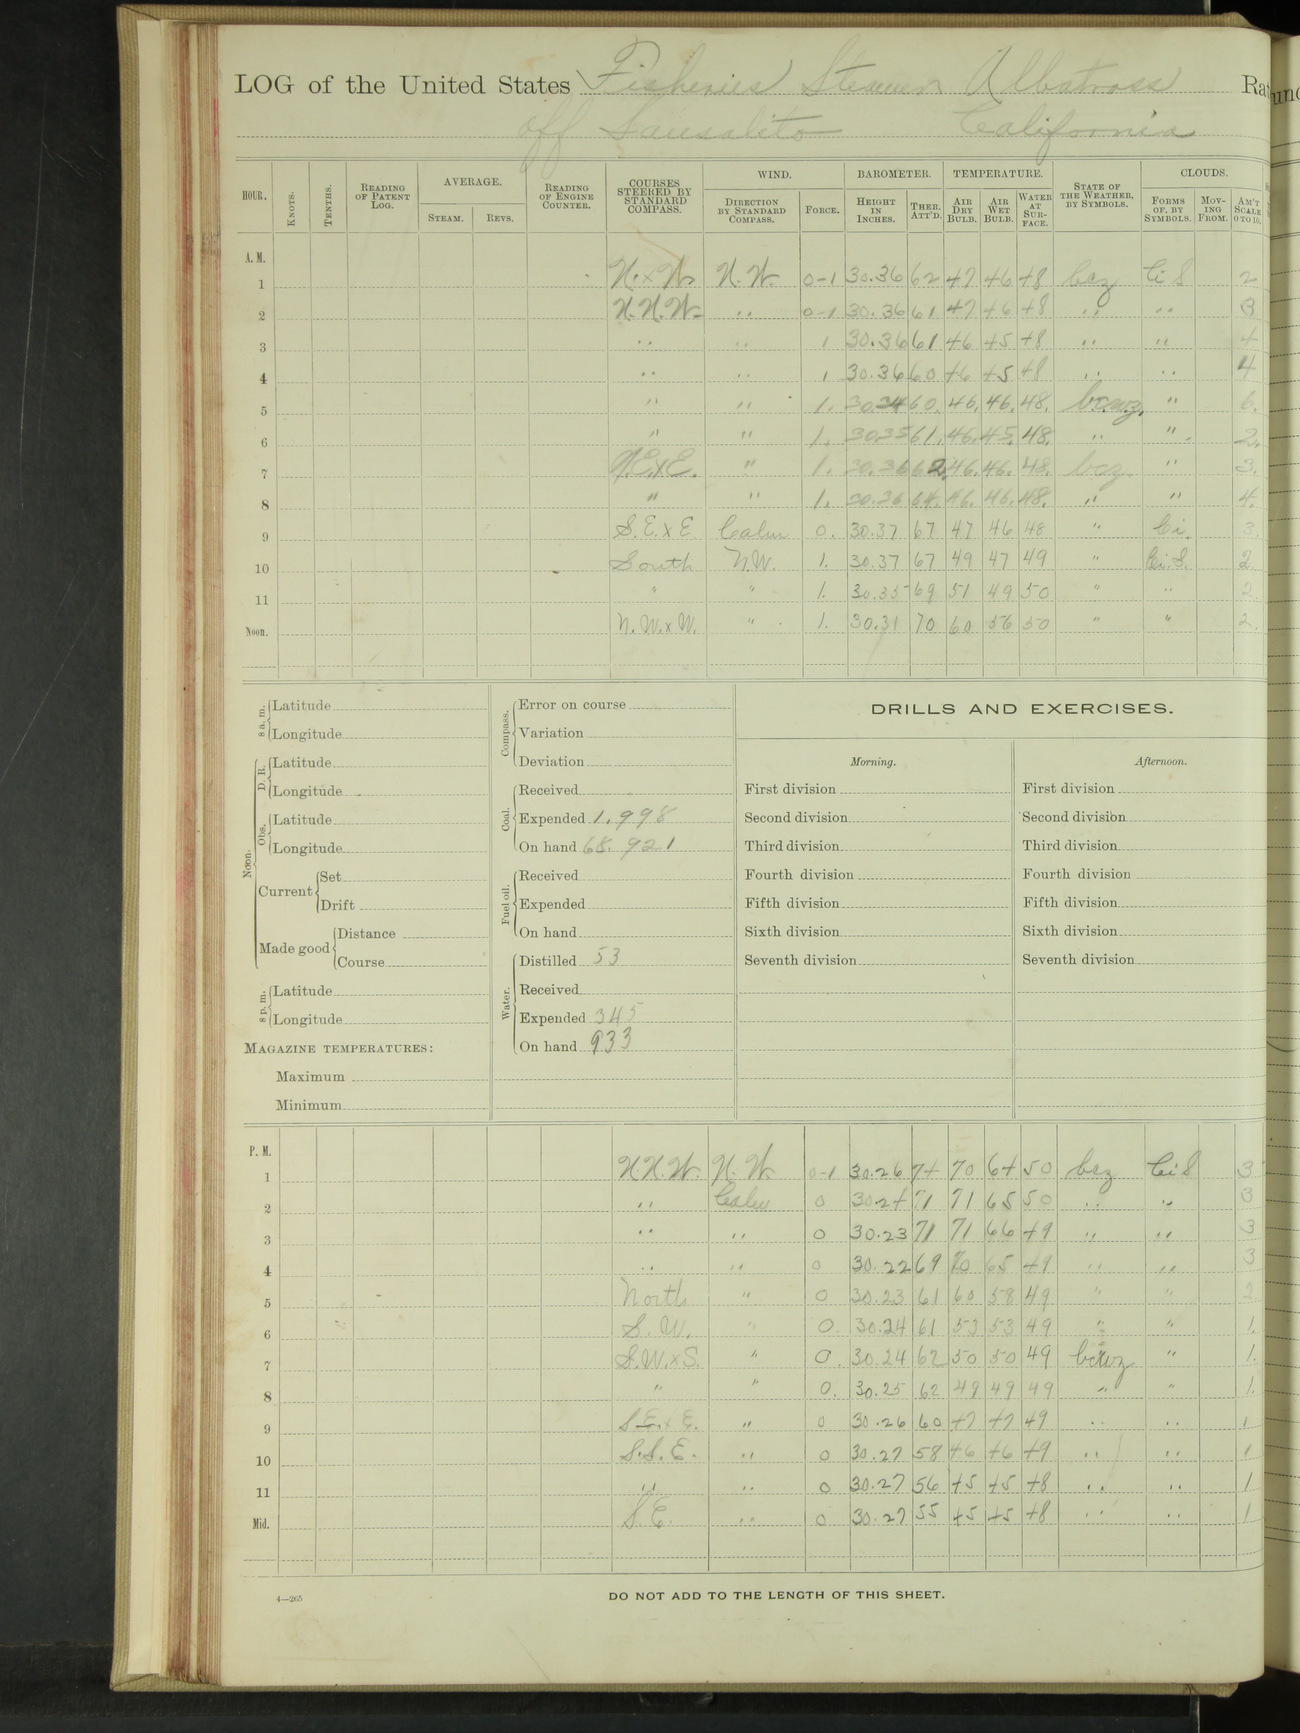 LOG of the United States Fisheries Steamer Albatross Ra
off Sausalito California
HOUR. KNOTS. TENTHS. READING OF PATENT LOG. AVERAGE. STEAM. REVS. READING OF ENGINE COUNTER. COURSES STEERED BY STANDARD COMPASS. WIND. DIRECTION BY STANDARD COMPASS. FORCE. BAROMETER. HEIGHT IN INCHES. THER. ATT'D. TEMPERATURE. AIR DRY BULB. AIR WET BULB. WATER AT SURFACE. STATE OF THE WEATHER, BY SYMBOLS. CLOUDS. FORMS OF, BY SYMBOLS. MOVING FROM. AM'T SCALE 0 TO 10.
A. M.
1 N.xW. N.W. 0-1 30.36 62 47 46 48 bcz Ci S 2
2 N.N.W. " 0-1 30.36 61 47 46 48 " " 3
3 " " 1 30.36 61 46 45 48 " " 4
4 " " 1 30.36 60 46 45 48 " " 4
5 " " 1. 30.34 60. 46. 46. 48. bcwz. " 6.
6 " " 1. 30.35 61. 46. 45. 48. " " 2.
7 N.E.xE. " 1. 30.36 62. 46. 46. 48. bcz. " 3.
8 " " 1. 30.36 64. 46. 46. 48. " " 4.
9 S.E.xE Calm 0. 30.37 67 47 46 48 " Ci. 3.
10 South N.W. 1. 30.37 67 49 47 49 " Ci.S. 2.
11 " " 1. 30.35 69 51 49 50 " " 2.
Noon. N.W.xW. " 1. 30.31 70 60 56 50 " " 2.
8 a. m. Latitude
Longitude
Noon. D. R. Latitude
Longitude
Obs. Latitude
Longitude
Current Set
Drift
Made good Distance
Course
8 p. m. Latitude
Longitude
MAGAZINE TEMPERATURES:
Maximum
Minimum
Compass. Error on course
Variation
Deviation
Coal. Received
Expended 1,998
On hand 68.921
Fuel oil. Received
Expended
On hand
Water. Distilled 53
Received
Expended 345
On hand 933
DRILLS AND EXERCISES.
Morning. Afternoon.
First division First division
Second division Second division
Third division Third division
Fourth division Fourth division
Fifth division Fifth division
Sixth division Sixth division
Seventh division Seventh division
P. M.
1 N.N.W. N.W. 0-1 30.26 74 70 64 50 bcz Ci S 3
2 " Calm 0 30.24 71 71 65 50 " " 3
3 " " 0 30.23 71 71 66 49 " " 3
4 " " 0 30.22 69 70 65 49 " " 3
5 North " 0 30.23 61 60 58 49 " " 2
6 S.W. " 0. 30.24 61 53 53 49 " " 1.
7 S.W.xS. " 0. 30.24 62 50 50 49 bcwz " 1.
8 " " 0. 30.25 62 49 49 49 " " 1.
9 S.E.xE. " 0 30.26 60 47 47 49 " " 1
10 S.S.E. " 0 30.27 58 46 46 49 " " 1
11 " " 0 30.27 56 45 45 48 " " 1
Mid. S.E. " 0 30.27 55 45 45 48 " " 1
4—265
DO NOT ADD TO THE LENGTH OF THIS SHEET.